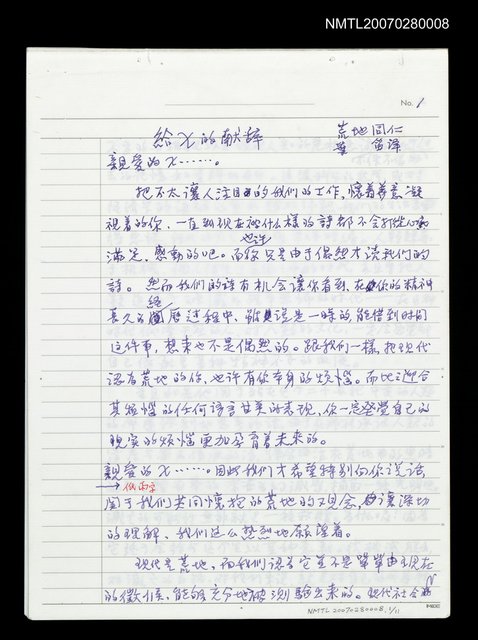 NMTL20070280008
No. 1
給X的献辞
荒地同仁
笛澤
親愛的X……。
把不太讓人注目的我們的工作,懷着善意凝
視着的你,一直到現在被什么樣的詩都不会打從心底
滿足、感動的吧。而你也许只是由于偶然才读我們的
詩。然而我們的詩有机会讓你看到,在你的精神
長久的經历过程中,雖說是一時的能借到时间
这件事,想来也不是偶然的。跟我们一樣,把現代
認為荒地的你,也许有你本身的煩惱。而比迎合
其煩惱的任何語言甘美的表現,你一定發覺自己的
現实的煩惱更加孕育着未来的。
親愛的X……。因此我们才希望特別向你说话
低兩字
関于我们共同懷抱的荒地的观念,讓深切
的理解,我们这么热烈地願望着。
現代是荒地,而我們認為它並不是單單由現在
的徵候,能够充分地被測驗出来的。現代社会的
NMTL 20070280008, 1/11